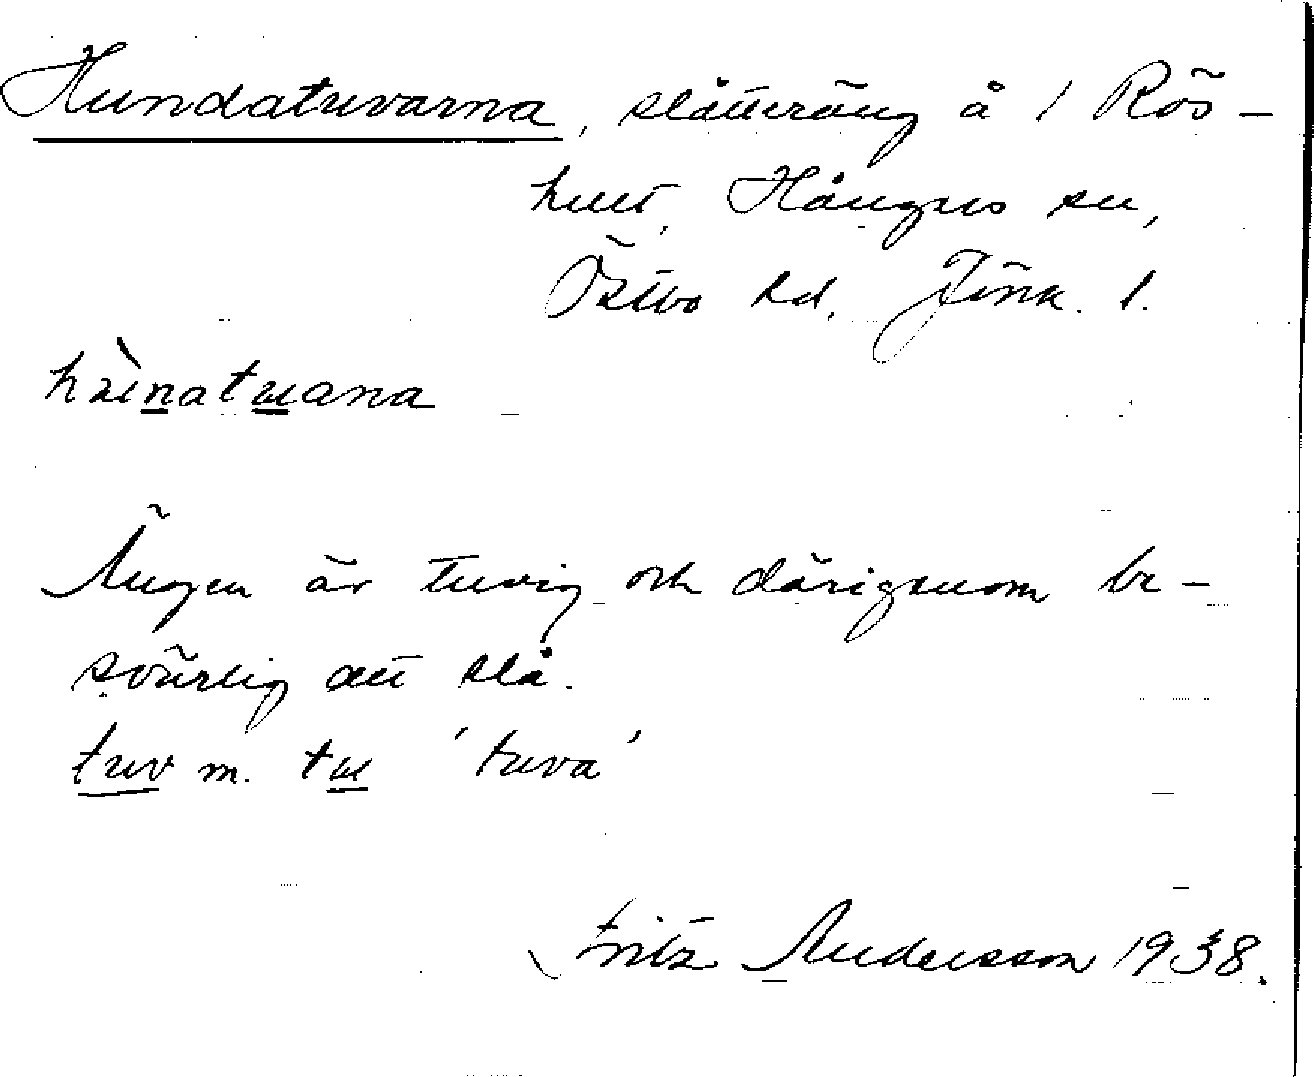 Hundatuvarna, slåtteräng å 1 Rös-
hult, Hångers sn,
Östbo hd, Jönk. l.
tuana
Ängen är tuvig och därigenom be-
svärlig att slå.
tuv m. tu 'tuva'
Fritz Andersson 1938.